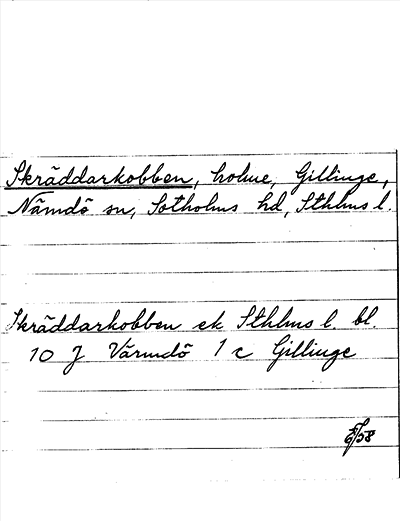 Skräddarkobben, holme, Gillinge,
Nämdö sn, Sotholms hd, Sthlms l.
Skräddarkobben ek Sthlms l. bl.
10 J Värmdö 1 c Gillinge